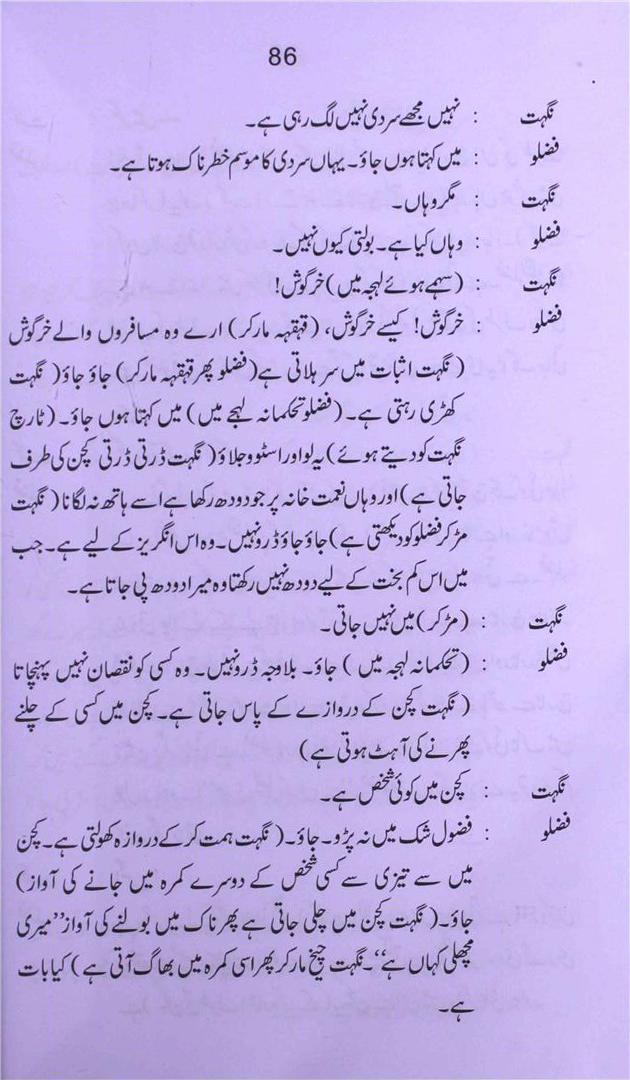 86
نگہت : نہیں مجھے سردی نہیں لگ رہی ہے۔
فضلو : میں کہتا ہوں جاؤ۔ یہاں سردی کا موسم خطرناک ہوتا ہے۔
نگہت : مگر وہاں۔
فضلو : وہاں کیا ہے۔ بولتی کیوں نہیں۔
نگہت : (سہمے ہوئے لہجہ میں) خرگوش!
فضلو : خرگوش! کیسے خرگوش، (قہقہہ مارکر) ارے وہ مسافروں والے خرگوش
(نگہت اثبات میں سر ہلاتی ہے (فضلو پھر قہقہہ مارکر) جاؤ جاؤ (نگہت
کھڑی رہتی ہے۔ (فضلو تحکمانہ لہجے میں) میں کہتا ہوں جاؤ۔ (ٹارچ
نگہت کو دیتے ہوئے) یہ لو اور اسٹوو جلاؤ (نگہت ڈرتی ڈرتی کچن کی طرف
جاتی ہے) اور وہاں نعمت خانہ پر جو دودھ رکھا ہے اسے ہاتھ نہ لگانا (نگہت
مڑ کر فضلو کو دیکھتی ہے) جاؤ جاؤ ڈرو نہیں۔ وہ اس انگریز کے لیے ہے۔ جب
میں اس کم بخت کے لیے دودھ نہیں رکھتا وہ میرا دودھ پی جاتا ہے۔
نگہت : (مڑ کر) میں نہیں جاتی۔
فضلو : (تحکمانہ لہجہ میں ) جاؤ۔ بلاوجہ ڈرو نہیں۔ وہ کسی کو نقصان نہیں پہنچاتا
(نگہت کچن کے دروازے کے پاس جاتی ہے۔ کچن میں کسی کے چلنے
پھرنے کی آہٹ ہوتی ہے)
نگہت : کچن میں کوئی شخص ہے۔
فضلو : فضول شک میں نہ پڑو۔ جاؤ۔ (نگہت ہمت کر کے دروازہ کھولتی ہے۔ کچن
میں سے تیزی سے کسی شخص کے دوسرے کمرہ میں جانے کی آواز)
جاؤ۔ (نگہت کچن میں چلی جاتی ہے پھر ناک میں بولنے کی آواز ”میری
مچھلی کہاں ہے“۔ نگہت چیخ مار کر پھر اسی کمرہ میں بھاگ آتی ہے) کیا بات
ہے۔